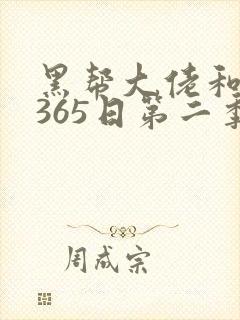 黑帮大佬和
365日第二季
周成宗